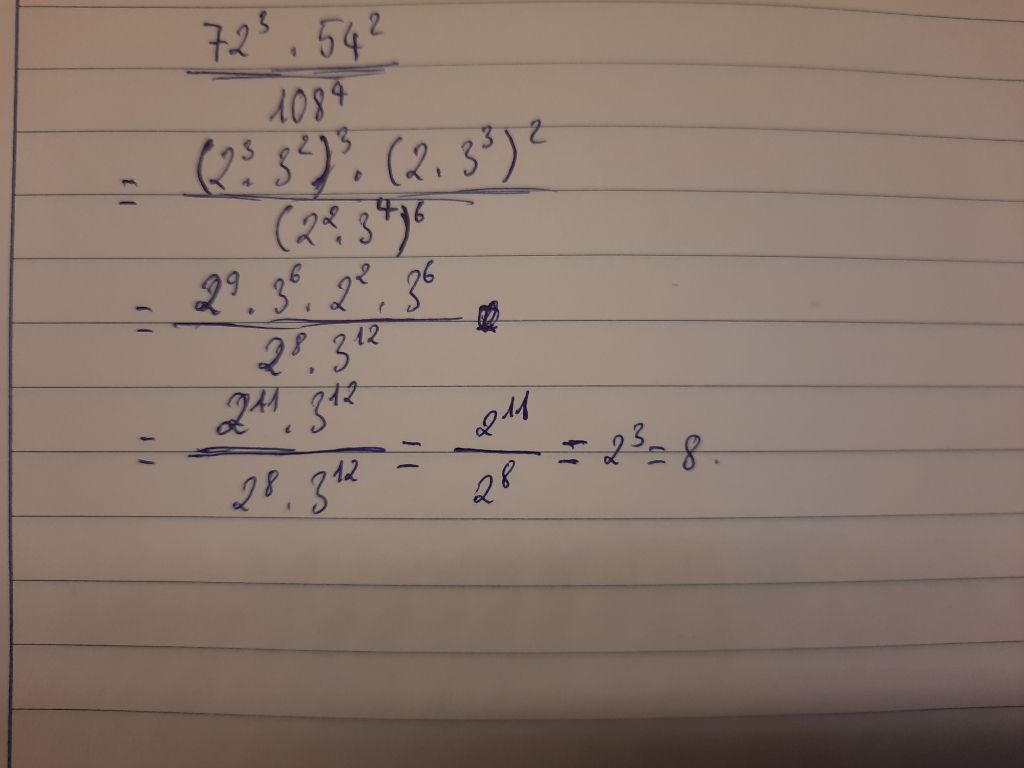 72³ . 54²
108⁴
= (2³ . 3²)³ . (2 . 3³)²
(2² . 3⁴)⁶
= 2⁹ . 3⁶ . 2² . 3⁶
2⁸ . 3¹²
= 2¹¹ . 3¹² = 2¹¹ = 2³ = 8.
2⁸ . 3¹² 2⁸